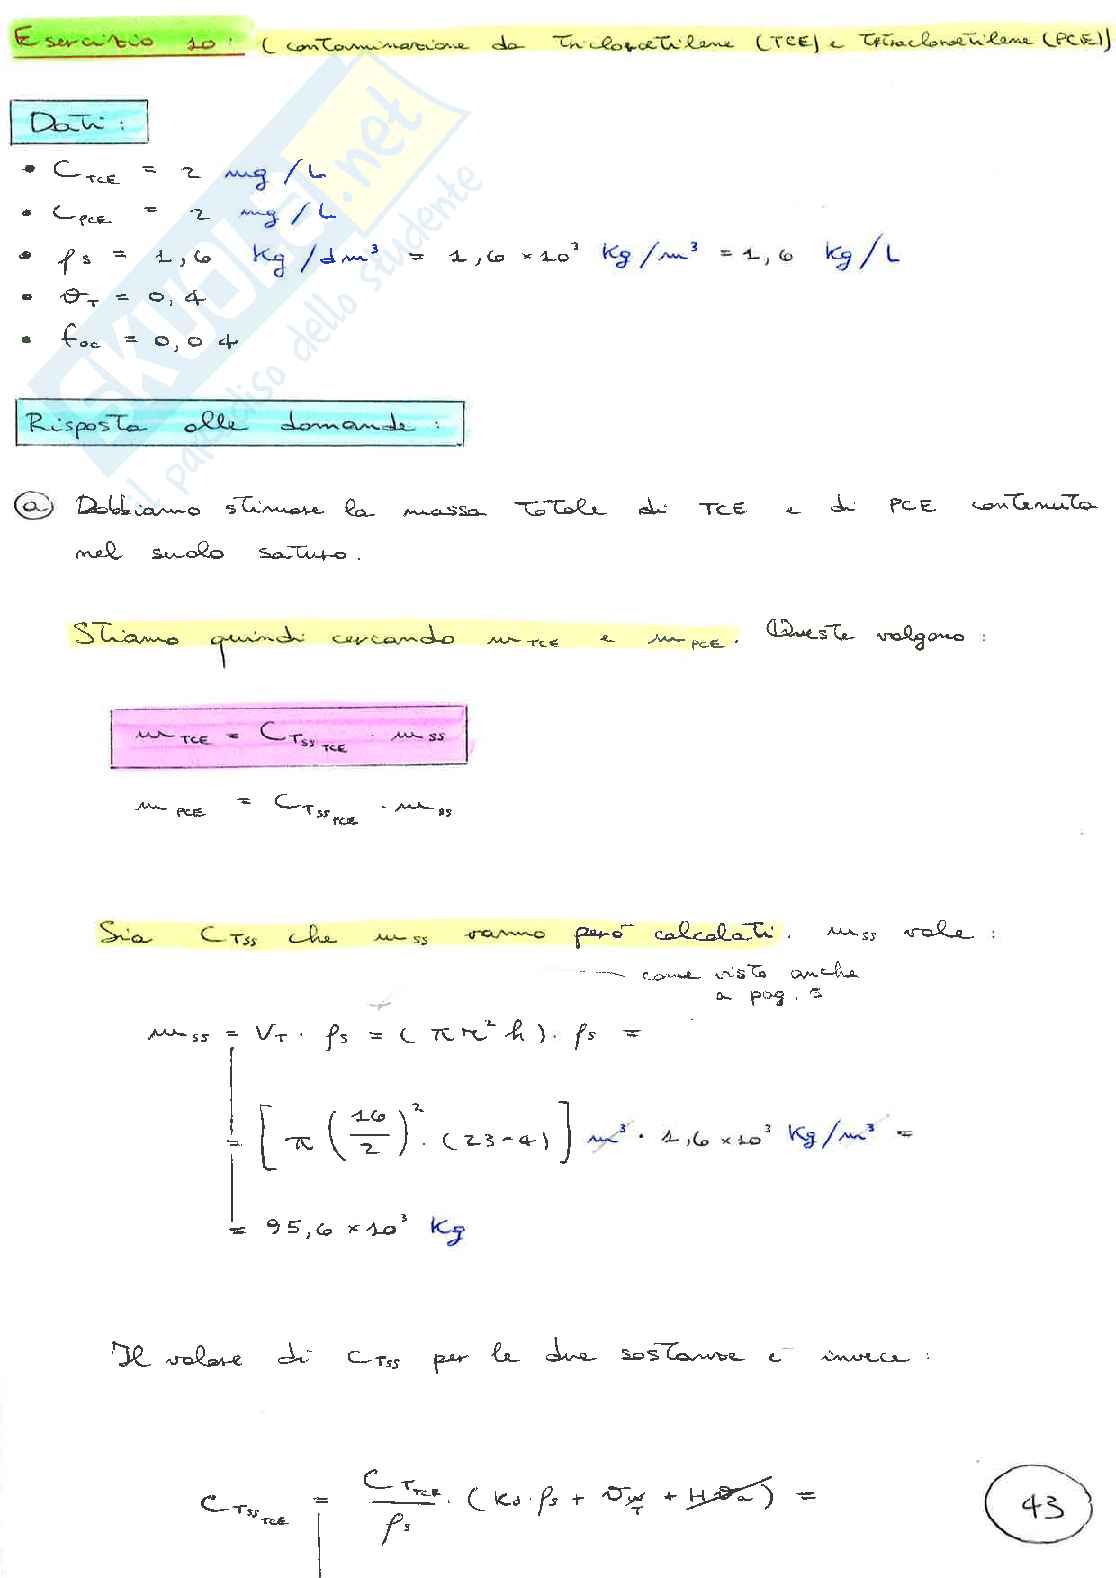 Esercizio 10: (contaminazione da Tricloroetilene (TCE) e Tetracloroetilene (PCE))
Dati:
• C_TCE = 2 mg/L
• C_PCE = 2 mg/L
• ρs = 1,6 Kg/dm³ = 1,6 × 10³ Kg/m³ = 1,6 Kg/L
• θ_T = 0,4
• f_oc = 0,04
Risposta alle domande:
ⓐ Dobbiamo stimare la massa totale di TCE e di PCE contenuta
nel suolo saturo.
Stiamo quindi cercando m_TCE e m_PCE. Queste valgono:
m_TCE = C_Tss_TCE · m_ss
m_PCE = C_Tss_PCE · m_ss
Sia C_Tss che m_ss vanno però calcolati. m_ss vale:
come visto anche
a pag. 5
m_ss = V_T · ρs = (π r² h) · ρs =
= [π (16/2)² · (23-4)] m³ · 1,6 × 10³ Kg/m³ =
= 95,6 × 10³ Kg
Il valore di C_Tss per le due sostanze è invece:
C_Tss_TCE = C_T_TCE/ρs · (Kd · ρs + θ_w_T + Hθa) =
43
SKUOLA.net
il paradiso dello studente